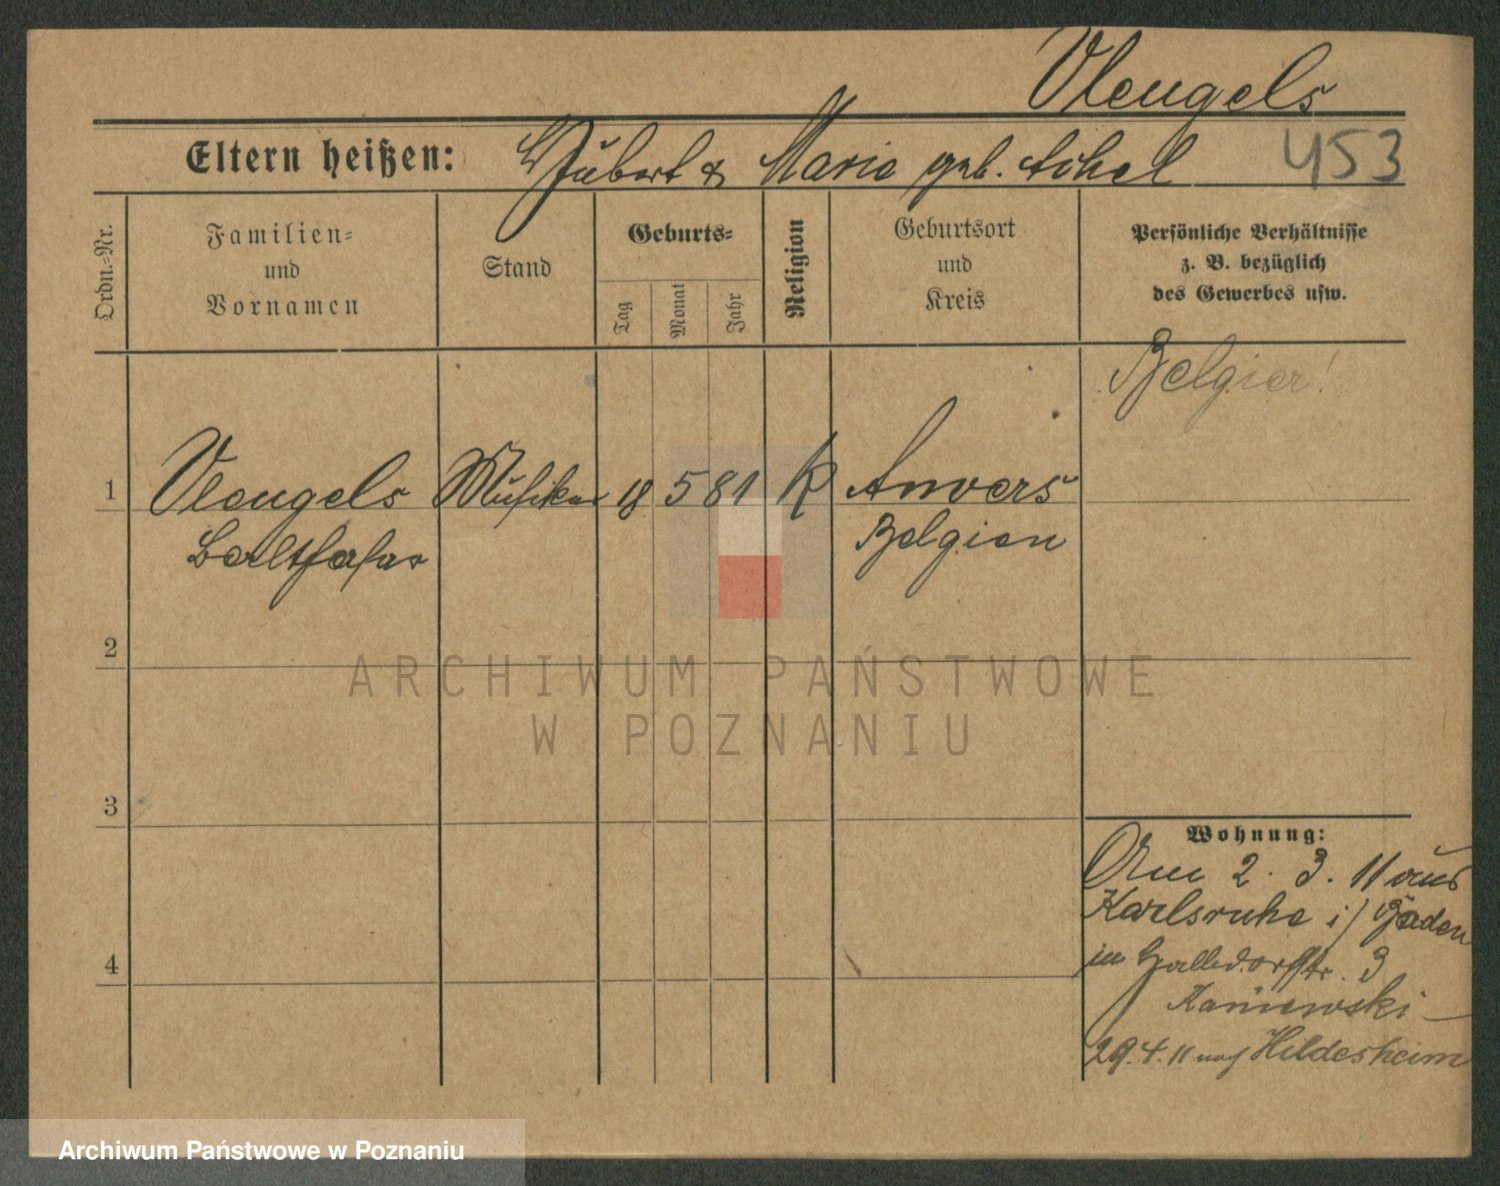 Vleugels
Eltern heißen: Hubert & Marie geb.
453
Ordn.=Nr.
Familien=
und
Vornamen
Stand
Geburts=
Tag
Monat
Jahr
Religion
Geburtsort
und
Kreis
Persönliche Verhältnisse
z. B. bezüglich
des Gewerbes usw.
Belgier!
1 Vleugels Musiker 18 5 81 K Anvers
Balthasar Belgien
2
3
4
Wohnung:
Am 2. 3. 11 aus
Karlsruhe i/ Baden
in 3
Kaniewski
29.4.11 nach Hildesheim
ARCHIWUM PAŃSTWOWE
W POZNANIU
Archiwum Państwowe w Poznaniu